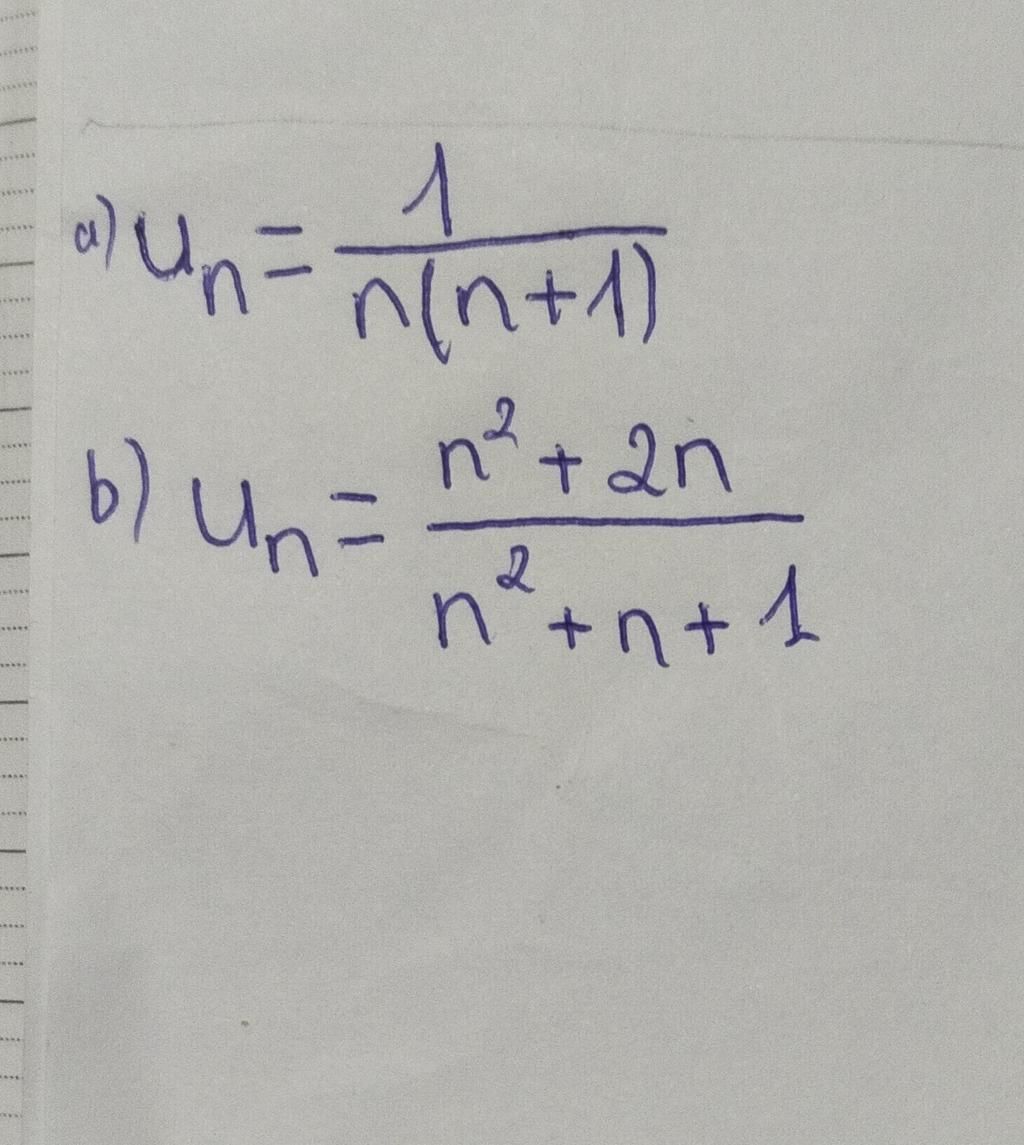 a) uₙ = 1/(n(n+1))
b) uₙ = (n² + 2n)/(n² + n + 1)